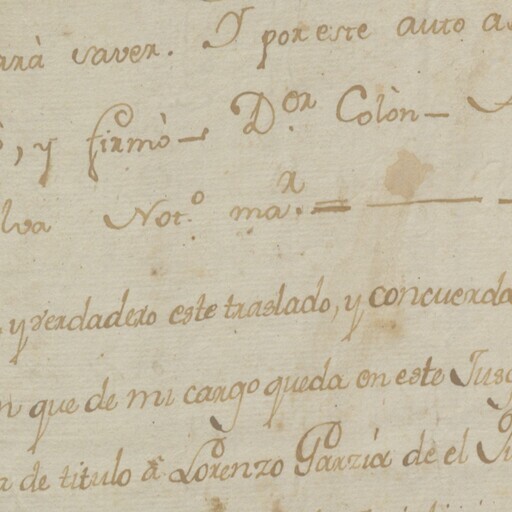 ará saver. Y por este auto a
, y firmò— D.or Colòn—
lva Not.o ma.r =
y verdadero este traslado, y concuerda
n que de mi cargo queda en este Jusg
a de titulo â Lorenzo Garzía de el